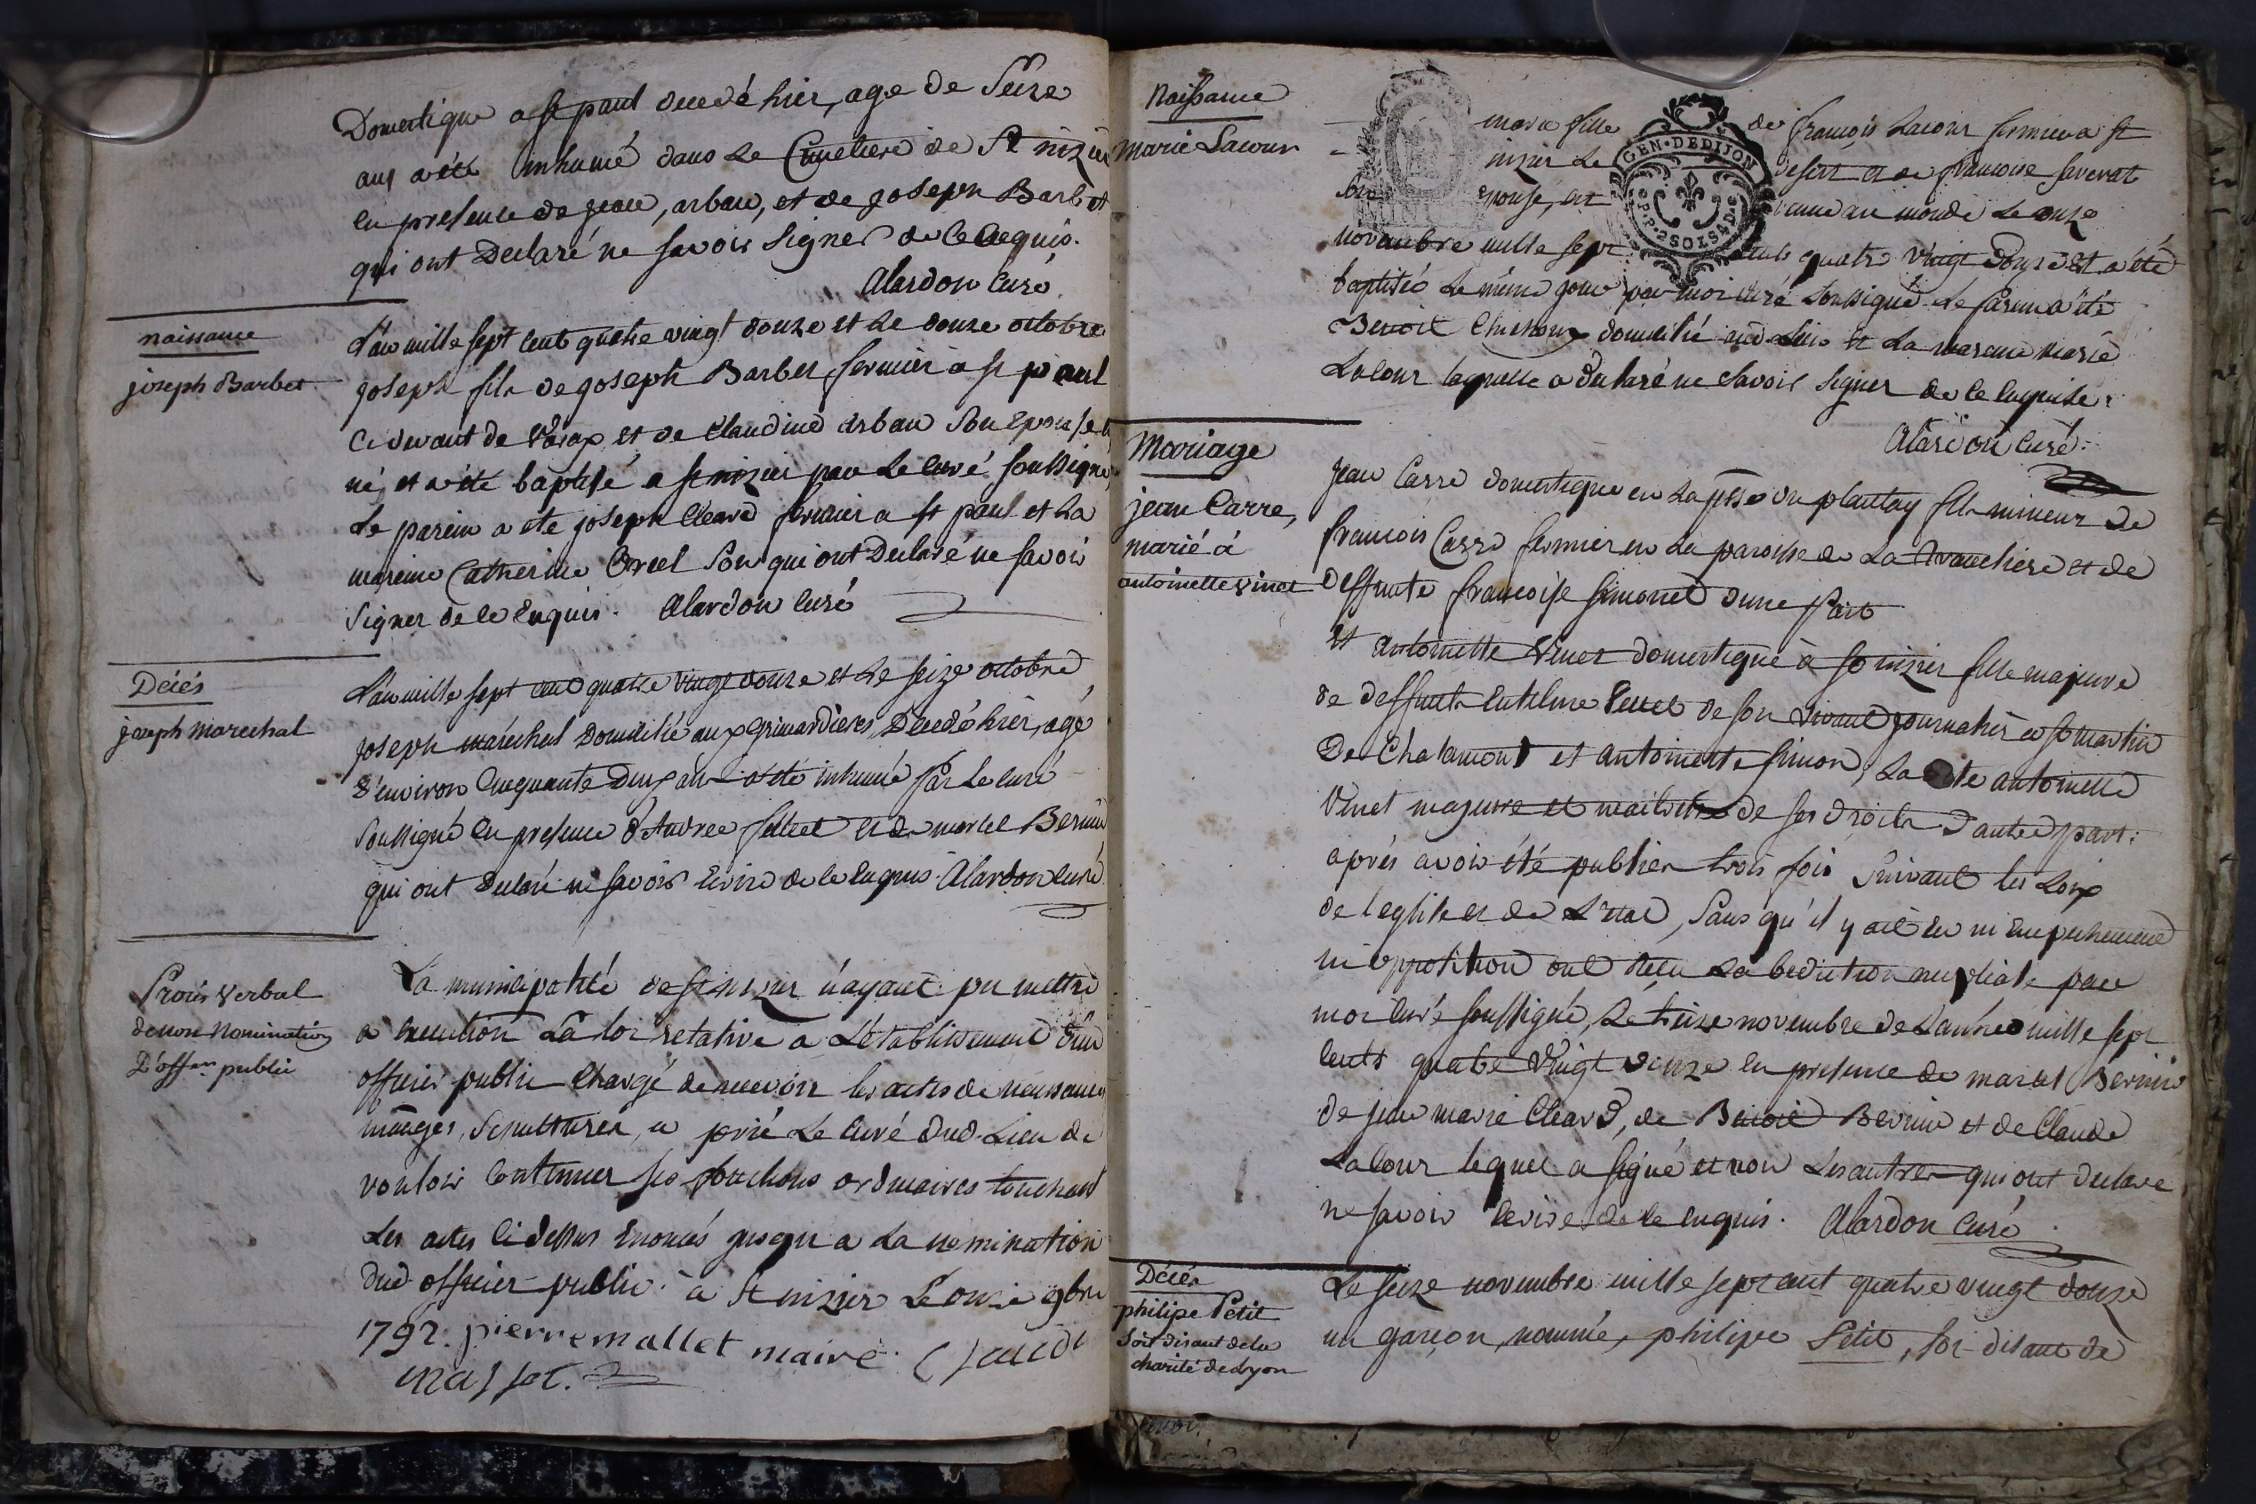 Domestique a st paul decedé hier, age de Seize
ans a été inhumé dans le Cimetiere de St nizier
en presence de jean, arban, et de joseph Barbet
qui ont Declaré ne savoir Signer de ce enquis.
Alardon Curé
naissance
joseph Barbet
L'an mille sept cent quatre vingt douze et le douze octobre
joseph fils de joseph Barbet fermier à st paul
Ci devant de Varax et de Claudine arban Son epouse
né, et a été baptisé a st nizier par le curé soussigné
le parein a ete joseph Cleard fermier a st paul et la
mareine Catherine Orcel Son qui ont Declaré ne savoir
signer de ce enquis. Alardon curé
Décés
joseph marechal
L'an mille sept cent quatre vingt douze et le seize octobre
joseph maréchal Domicilié aux grimardieres, Decedé hier, agé
d'environ Cinquante Deux ans a été inhumé par le curé
soussigné en presence d'Andree et de marcel Bernin
qui ont declaré ne savoir écrire de ce enquis Alardon curé
Procés Verbal
de non Nomination
D'offer public
La municipalité de st nizier n'ayant pu mettre
a execution La loi relative a L'établissement d'un
officier public Chargé de recevoir les actes de naissances
mariages, Sepultures, a prié Le Curé dud. Lieu de
vouloir Continuer ses fonctions ordinaires touchant
Les actes Cidessus Enoncés jusqu'a La nomination
dud officier public. à St nizier Le onze 9bre
1792. pierre mallet maire.
Naissance
Marie Lacour
marie fille de francois Lacour fermier a st
nizier Le Desert et de francoise saverat
Son epouse, est venue au monde Le onze
novembre mille sept cents quatre vingt douze et a été
baptisée le même jour par moi curé soussigné. Le Parein a été
Benoit domicilié aud. Lieu et La mareine Marie
Lacour laquelle a déclaré ne savoir signer de ce enquise.
GEN. DE DIJON
Alardon Curé.
Mariage
jean Carre,
marié à
antoinette vinet
Jean Carre domestique en la psse du plantay fils mineur de
francois Carre fermier en la paroisse de La et de
deffunte francoise simonet d'une part
Et antoinette Vinet domestique à st nizier fille majeure
de deffunt Vinet de son vivant journalier a st martin
De Chalamont et antoinette simon, La dite antoinette
Vinet majeure et maitresse de ses droits d'autre part.
aprés avoir été publiés trois fois suivant les Loix
de l'eglise et de L'etat, sans qu'il y ait eu ni empechement
ni opposition ont reçu la benediction nuptiale par
moi curé soussigné, Le treize novembre de L'année mille sept
cents quatre vingt douze en presence de marcel Bernin
de jean marie Cleard, de Benoit Bernin et de Claude
Lacour lequel a signé et non Les autres qui ont declaré
ne savoir écrire de ce enquis. Alardon curé
Décés
philipe Petit
Soit disant de la
charité de Lyon
Le seize novembre mille sept cent quatre vingt douze
un garçon, nommé, philipe Petit, soi-disant de